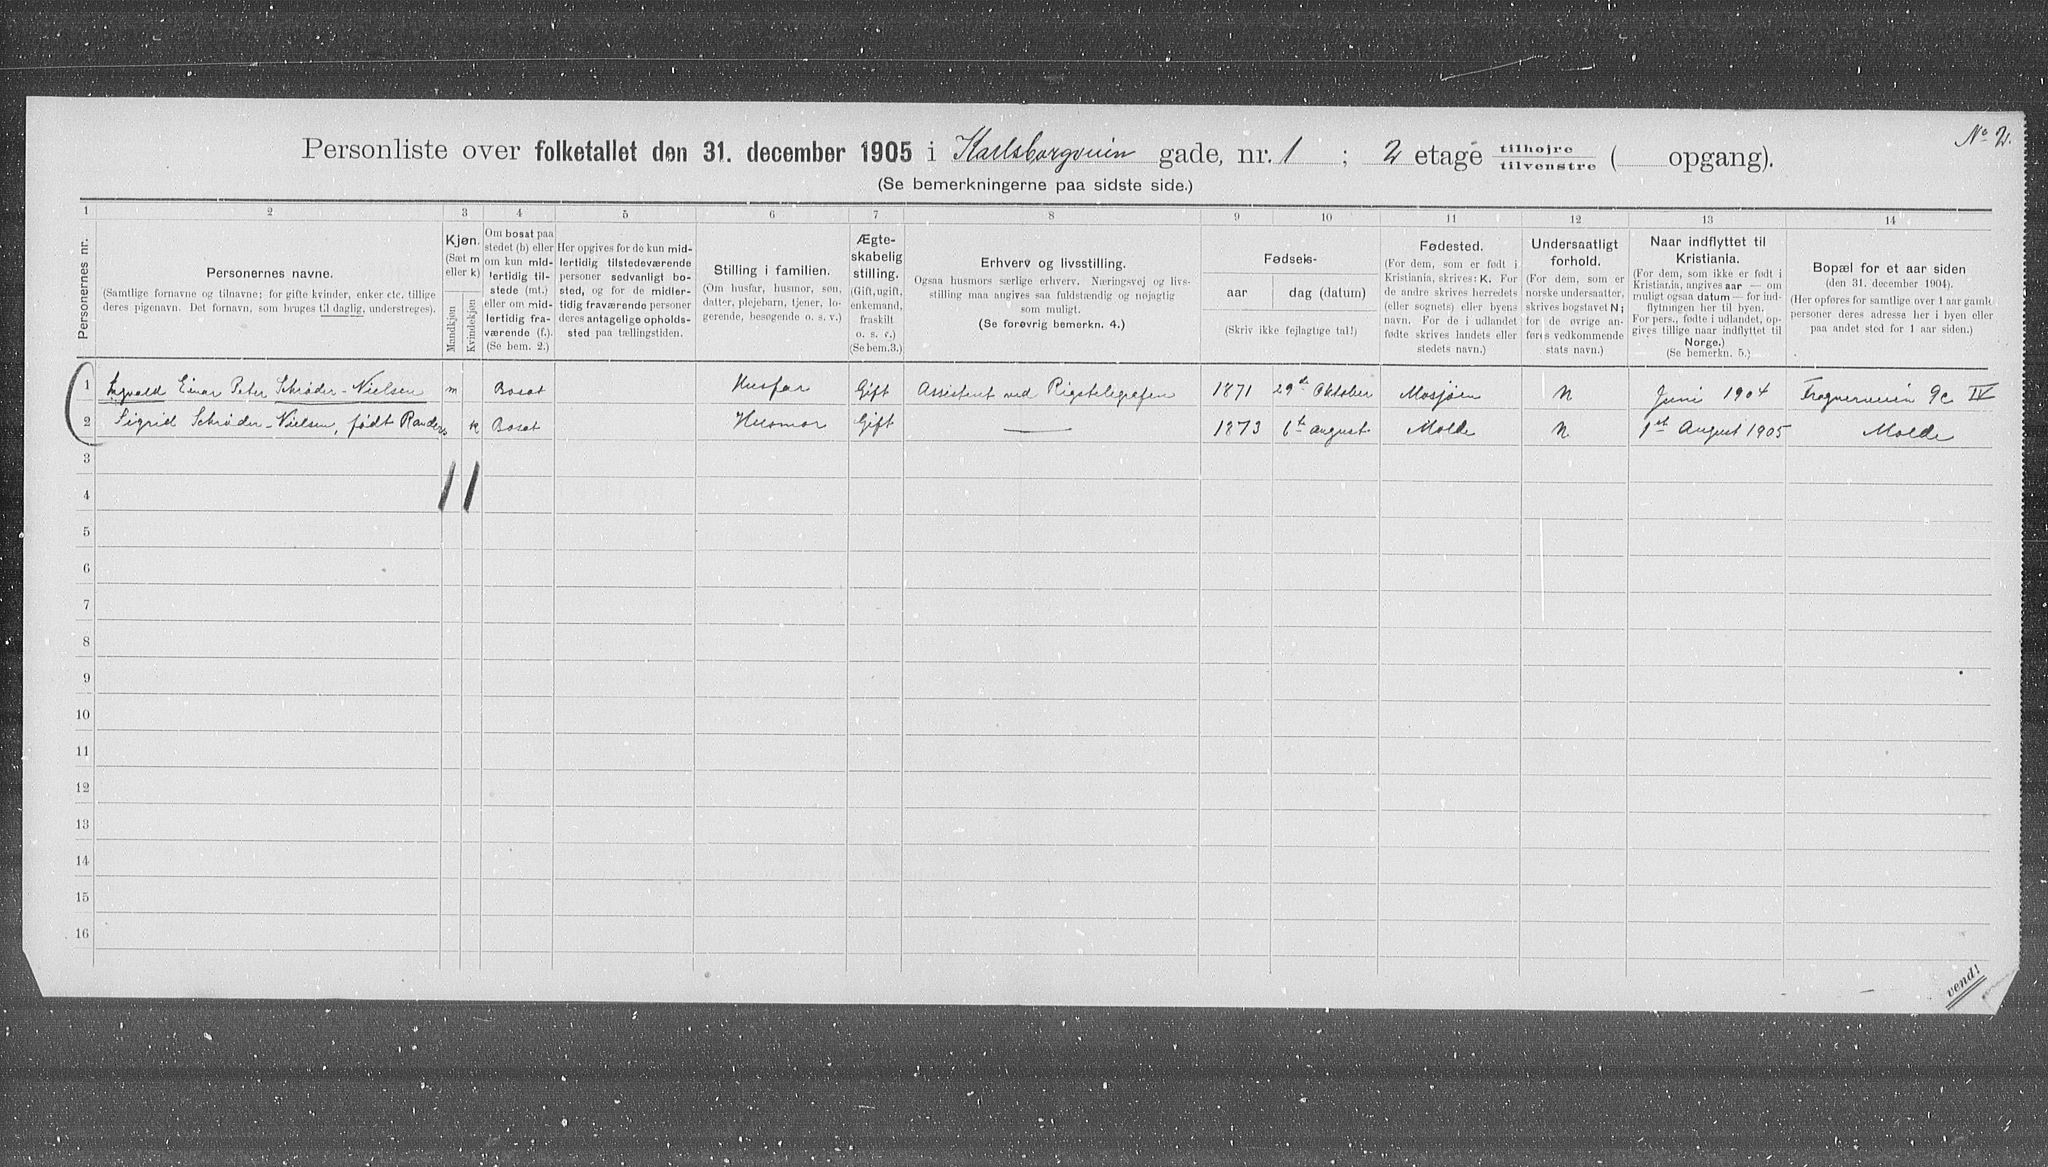 No 2.
Personliste over folketallet den 31. december 1905 i Karlsborgveien gade, nr. 1 ; 2 etage tilhøjre tilvenstre ( opgang).
(Se bemerkningerne paa sidste side.)
1 2 3 4 5 6 7 8 9 10 11 12 13 14
Personernes nr.
Personernes navne.
(Samtlige fornavne og tilnavne; for gifte kvinder, enker etc. tillige
deres pigenavn. Det fornavn, som bruges til daglig, understreges).
Kjøn.
(Sæt m
eller k)
Mandkjøn
Kvindekjøn
Om bosat paa
stedet (b) eller
om kun mid-
lertidig til-
stede (mt.)
eller om mid-
lertidig fra-
værende (f.).
(Se bem. 2.)
Her opgives for de kun mid-
lertidig tilstedeværende
personer sedvanligt bo-
sted, og for de midler-
tidig fraværende personer
deres antagelige opholds-
sted paa tællingstiden.
Stilling i familien.
(Om husfar, husmor, søn,
datter, plejebarn, tjener, lo-
gerende, besøgende o. s. v.)
Ægte-
skabelig
stilling.
(Gift, ugift,
enkemand,
fraskilt
o. s. v.)
(Se bem. 3.)
Erhverv og livsstilling.
Ogsaa husmors særlige erhverv. Næringsvej og livs-
stilling maa angives saa fuldstændig og nøjagtig
som muligt.
(Se forøvrig bemerkn. 4.)
Fødsels-
aar
dag (datum)
(Skriv ikke fejlagtige tal!)
Fødested.
(For dem, som er født i
Kristiania, skrives: K. For
de andre skrives herredets
(eller sognets) eller byens
navn. For de i udlandet
fødte skrives landets eller
stedets navn.)
Undersaatligt
forhold.
(For dem, som er
norske undersaatter,
skrives bogstavet N;
for de øvrige an-
føres vedkommende
stats navn.)
Naar indflyttet til
Kristiania.
(For dem, som ikke er født i
Kristiania, angives aar — om
muligt ogsaa datum — for ind-
flytningen her til byen.
For pers., fødte i udlandet, op-
gives tillige naar indflyttet til
Norge.)
(Se bemerkn. 5.)
Bopæl for et aar siden
(den 31. december 1904).
(Her opføres for samtlige over 1 aar gamle
personer deres adresse her i byen eller
paa andet sted for 1 aar siden.)
1 Ingvald Einar Peter Schrøder-Nielsen m Bosat Husfar Gift Assistent ved Rigstelegrafen 1871 29de Oktober Mosjøen N Juni 1904 Frognerveien 9c IV
2 Sigrid Schrøder-Nielsen, født Randers k Bosat Husmor Gift — 1873 6te august Molde N 1st August 1905 Molde
3
4 1 1
5
6
7
8
9
10
11
12
13
14
15
16
vend!